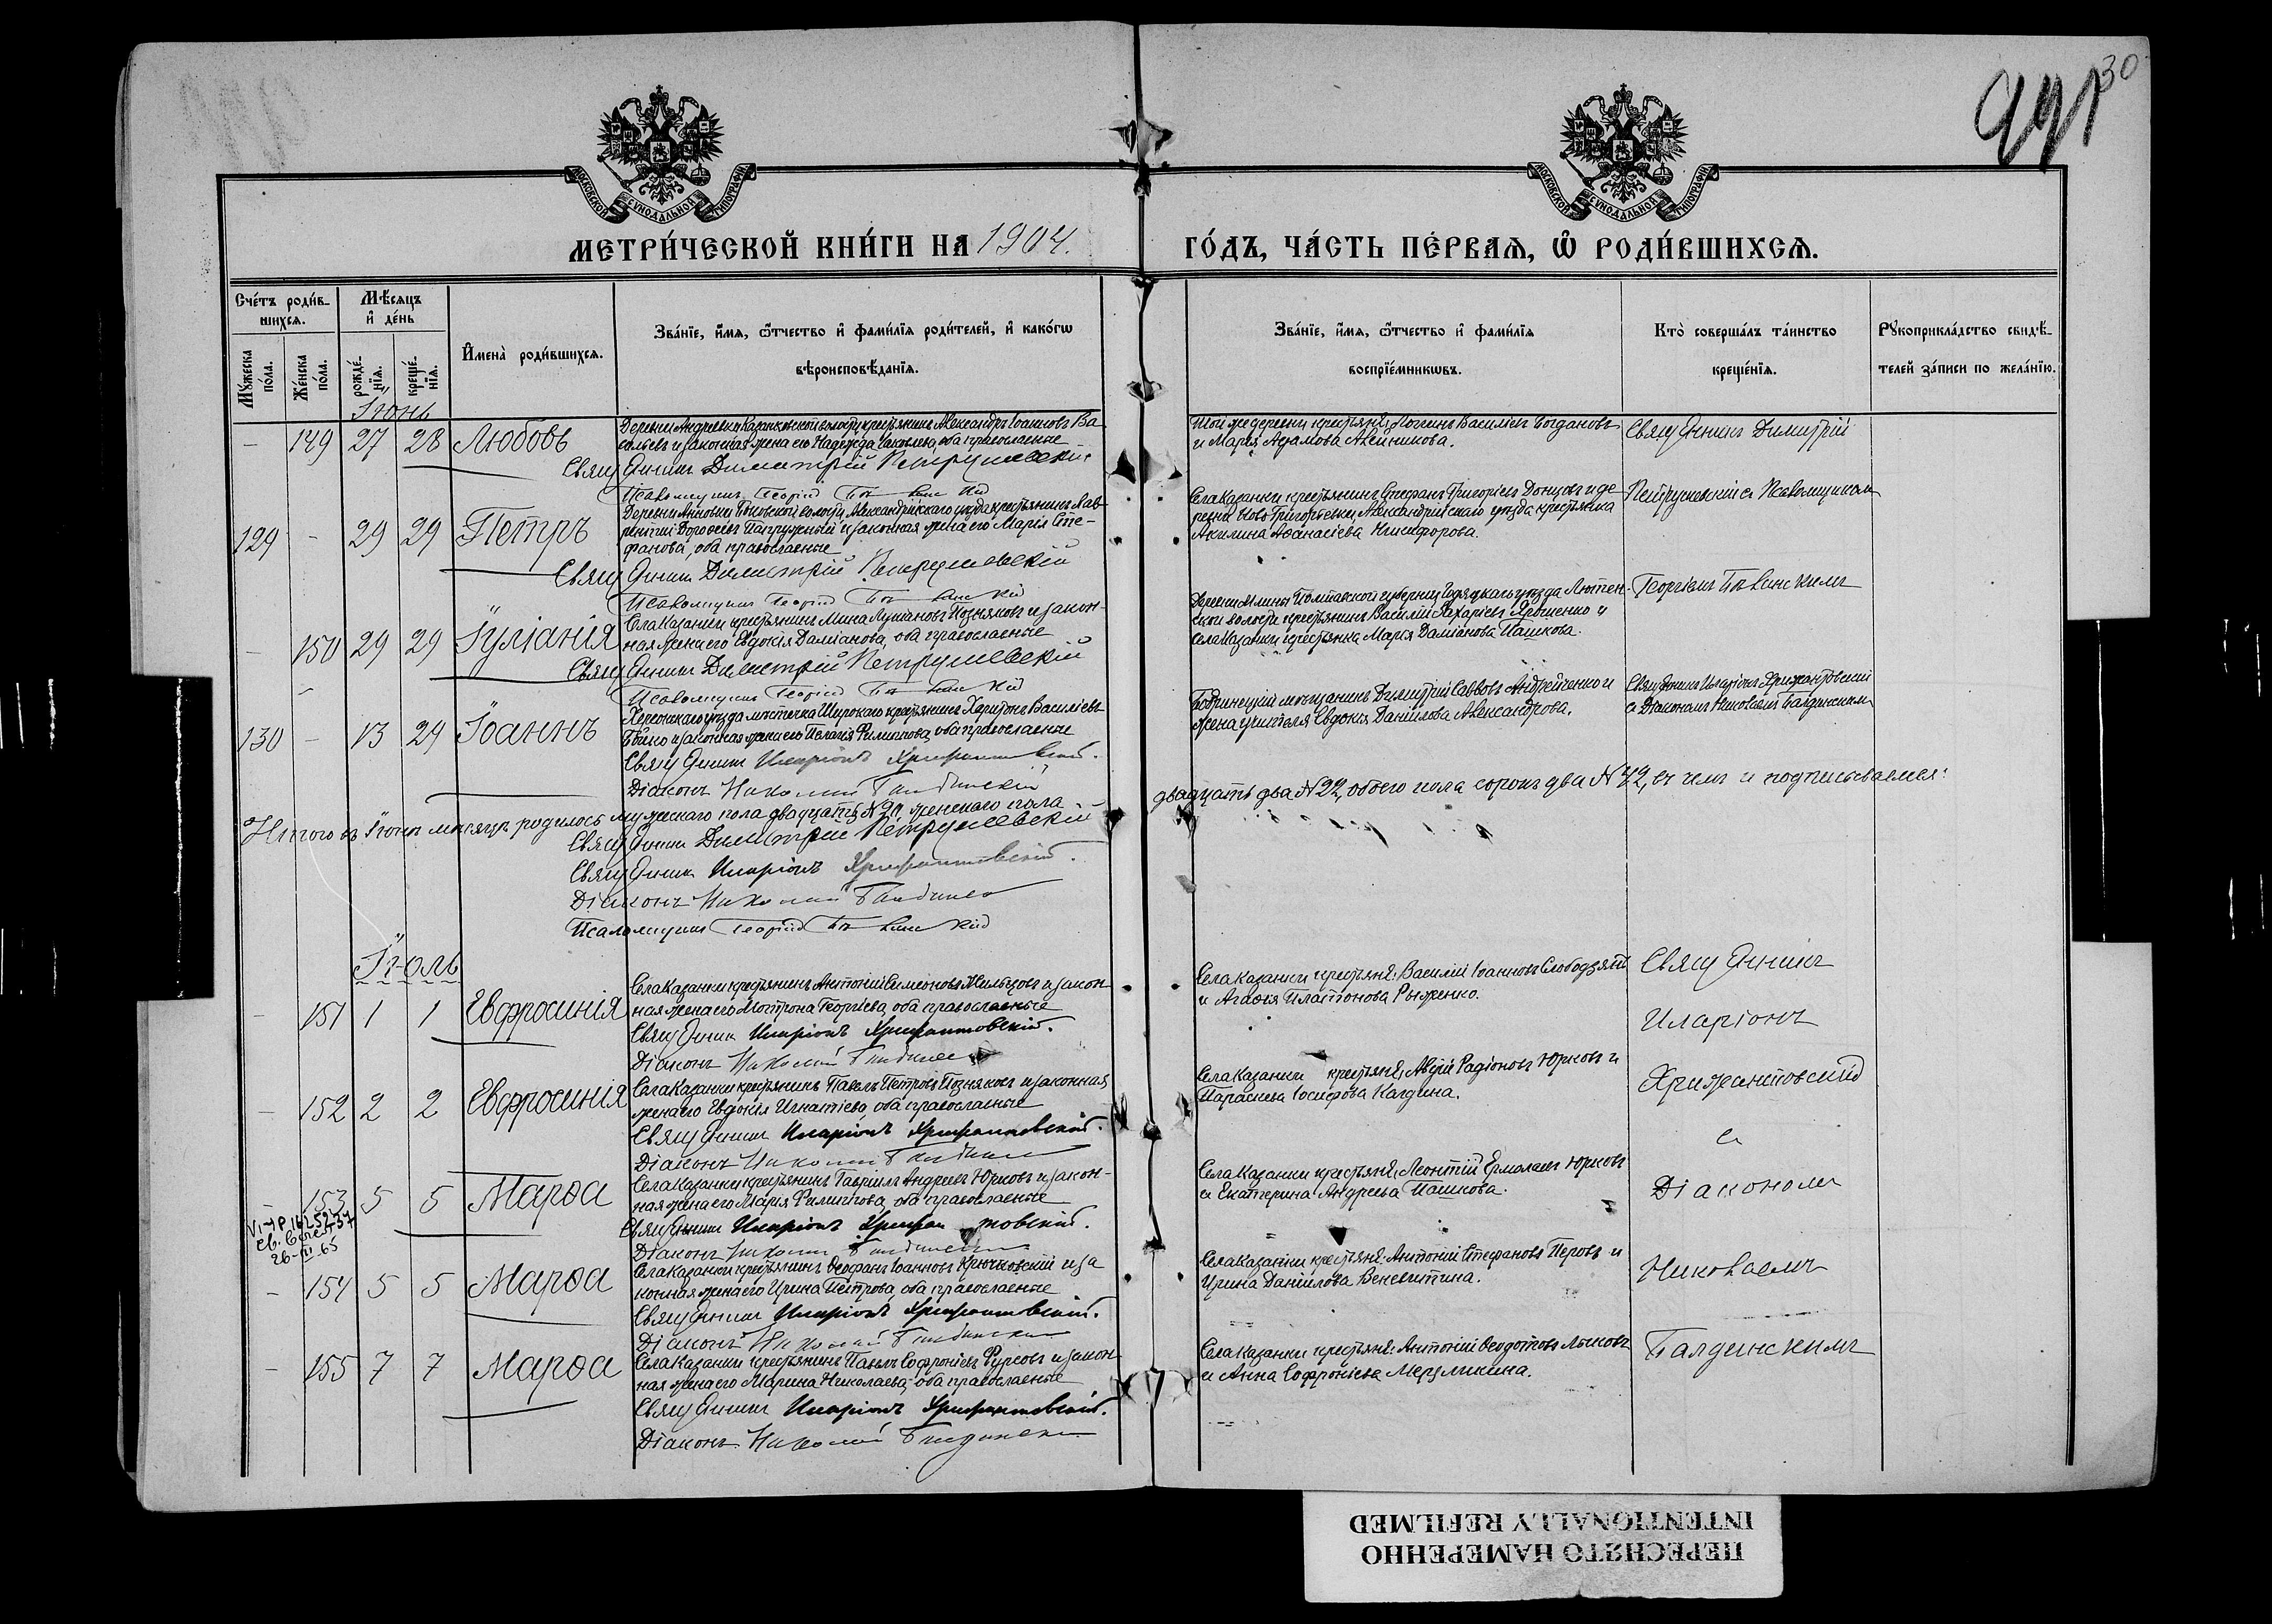 30
991
МОСКОВСКОЙ СѴНОДАЛЬНОЙ ТИПОГРАФІИ
МОСКОВСКОЙ СѴНОДАЛЬНОЙ ТИПОГРАФІИ
МЕТРИ́ЧЕСКОЙ КНИ́ГИ НА 1904. ГО́ДЪ, ЧА́СТЬ ПЕ́РВАѦ, Ѽ РОДИ́ВШИХСѦ.
Сче́тъ роди́в-
шихсѧ.
Мꙋ́жеска по́ла.
Же́нска по́ла.
Мѣ́сѧцъ и҆ де́нь
рожде́-нїѧ.
креще́-нїѧ.
И҆мена̀ роди́вшихсѧ.
Зва́нїе, и҆́мѧ, ѻ҆́тчество и҆ фами́лїѧ роди́телей, и҆ како́гѡ
вѣроисповѣ́данїѧ.
Зва́нїе, и҆́мѧ, ѻ҆́тчество и҆ фами́лїѧ
воспрїе́мникѡвъ.
Кто̀ соверша́лъ та́инство
креще́нїѧ.
Рꙋкоприкла́дство свидѣ́-
телей за́писи по жела́нїю.
Іюнь
– 149 27 28 Любовь
Деревни Андреевки Казанковской волости крестьянинъ Александръ Іоанновъ Ва
сильевъ и законная жена его Надежда Іаковлева, оба православные
Священникъ Димитрій Петрушевскій
Псаломщикъ Георгій
Той же деревни крестьяне: Логгинъ Василіевъ Богдановъ
и Марія Адамова Алейникова.
Священникъ Димитрій
129 – 29 29 Петръ
Деревни Анновки волости, Александрійскаго уѣзда крестьянинъ Лав-
рентій Дороѳеевъ и законная жена его Марія Сте-
фанова, оба православные
Священникъ Димитрій Петрушевскій
Псаломщикъ Георгій
Села Казанки крестьянинъ Стефанъ Григоріевъ Донцовъ и де-
ревни Ново Григорьевки, Александрійскаго уѣзда крестьянка
Акилина Аѳанасіева Никифорова.
Петрушевскій съ Псаломщикомъ
– 150 29 29 Іуліанія
Села Казанки крестьянинъ Мина Лукіановъ Позняковъ и закон-
ная жена его Евдокія Даміанова, оба православные
Священникъ Димитрій Петрушевскій
Псаломщикъ Георгій
Полтавской губерніи Гадяцкаго уѣзда Лютен-
ской волости крестьянинъ Василій Захаріевъ Ярошенко и
села Казанки крестьянка Марія Даміанова Пашкова.
Георгіемъ
130 – 13 24 Іоаннъ
Херсонскаго уѣзда мѣстечка Широкаго крестьянинъ Харитонъ Василіевъ
и законная жена его Пелагія Филиппова, оба православные
Священникъ Иларіонъ Хрисантовскій.
Діаконъ Николай Балдинскій
Бобринецкій мѣщанинъ Димитрій Саввовъ Андрейченко и
жена учителя Евдокія Даніилова Александрова.
Священникъ Иларіонъ Хрисантовскій
съ Діакономъ Николаемъ Балдинскимъ
Итого въ Іюнѣ мѣсяцѣ родилось мужескаго пола двадцать №20, женскаго пола
двадцать два №22, обоего пола сорокъ два №42, въ чемъ и подписываемся:
Священникъ Димитрій Петрушевскій
Священникъ Иларіонъ Хрисантовскій.
Діаконъ Николай Балдинскій
Псаломщикъ Георгій
Іюль
– 151 1 1 Евфросинія
Села Казанки крестьянинъ Антоній Симеоновъ и закон-
ная жена его Мотрона Георгіева, оба православные
Священникъ Иларіонъ Хрисантовскій.
Діаконъ Николай Балдинскій
Села Казанки крестьяне: Василій Іоанновъ Слободзянъ
и Агаѳія Платонова Рыженко.
Священникъ
Иларіонъ
– 152 2 2 Евфросинія
Села Казанки крестьянинъ Павелъ Петровъ Позняковъ и законная
жена его Евдокія Игнатіева, оба православные
Священникъ Иларіонъ Хрисантовскій.
Діаконъ Николай Балдинскій
Села Казанки крестьяне: Авдій Радіоновъ Юрковъ и
Параскева Іосифова Калдина.
Хрисантовскій
съ
– 153 5 5 Марѳа
Села Казанки крестьянинъ Гавріилъ Андреевъ Юрковъ и закон-
ная жена его Марія Филиппова, оба православные
Священникъ Иларіонъ Хрисантовскій.
Діаконъ Николай Балдинскій
Села Казанки крестьяне: Леонтій Ермолаевъ Юрковъ
и Екатерина Андреева Пашкова.
Діакономъ
26-III-65
– 154 5 5 Марѳа
Села Казанки крестьянинъ Ѳеофанъ Іоанновъ Крючковскій и за
конная жена его Ирина Петрова, оба православные
Священникъ Иларіонъ Хрисантовскій.
Діаконъ Николай Балдинскій
Села Казанки крестьяне: Антоній Стефановъ Перовъ и
Ирина Даніилова Веневитина.
Николаемъ
– 155 7 7 Марѳа
Села Казанки крестьянинъ Павелъ Софроніевъ Фурсовъ и закон-
ная жена его Марина Николаева, оба православные
Священникъ Иларіонъ Хрисантовскій.
Діаконъ Николай Балдинскій
Села Казанки крестьяне: Антоній Ѳеодотовъ Лысковъ
и Анна Софроніева Мерзликина.
Балдинскимъ
ПЕРЕСНЯТО НАМЕРЕННО
INTENTIONALLY REFILMED